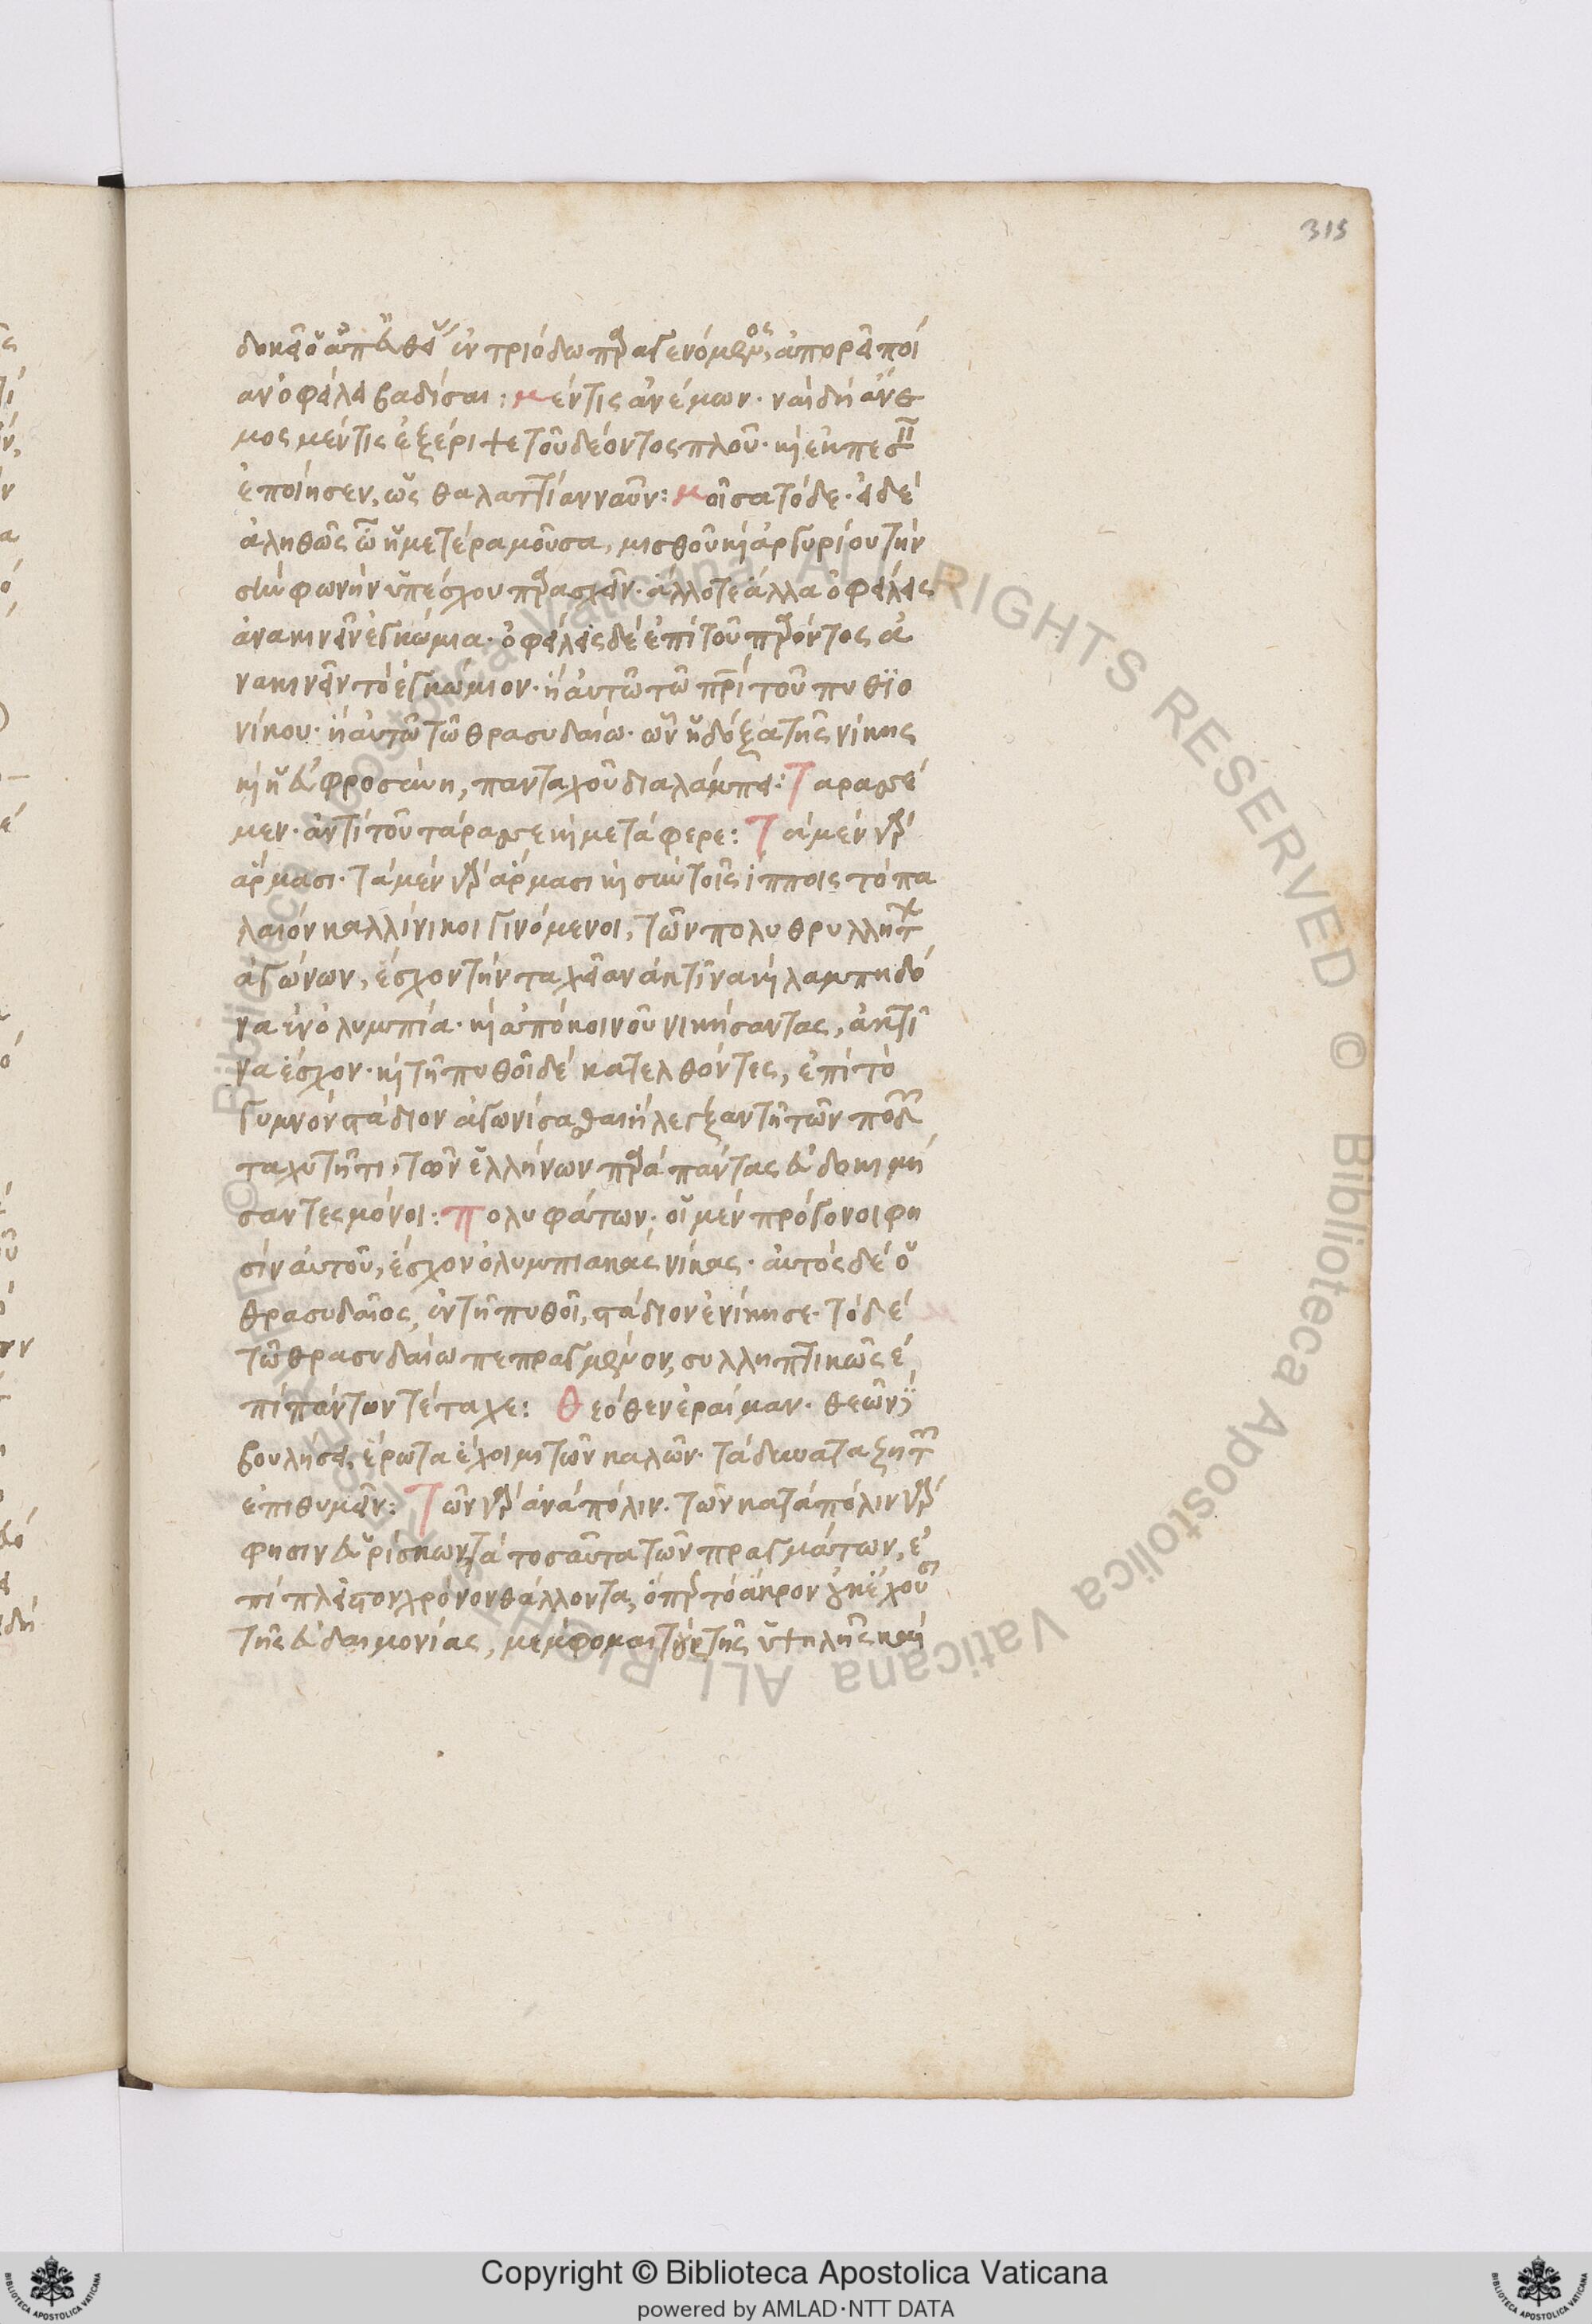 315
δοκεῖ οὖν ἀπευθεῖ ἐν τριόδω παραγενόμενος, ἀπορεῖ ποῖ
αν ὀφείλει βαδίσαι: μέντις ἀνέμων. ναὶ δὴ ἄνε
μος μέντις ἐξέριψε τοῦ δέοντος πλοῦ. καὶ ἐκπεσεῖν
ἐποίησεν, ὡς θαλαττίαν ναῦν: μοῖσα τόδε. εἰ δὲ
ἀληθῶς ὦ ἡμετέρα μοῦσα, μισθοῦ καὶ ἀργυρίου τὴν
σὴν φωνὴν ὑπέσχου παρασχεῖν. ἄλλοτε ἄλλα ὀφείλεις
ἀνακινεῖν ἐγκώμια. ὀφείλεις δὲ ἐπὶ τοῦ παρόντος ἀ
νακινεῖν τὸ ἐγκώμιον. ἢ αὐτῶ τῶ πατρὶ τοῦ πυθϊο
νίκου. ἢ αὐτῶ τῶ θρασυδαίω. ὧν ἡ δόξα τῆς νίκης
καὶ ἡ εὐφροσύνη, πανταχοῦ διαλάμπει: Ταρασσέ
μεν. ἀντὶ τοῦ τάρασσε καὶ μετάφερε: Τὰ μὲν γὰρ
ἅρμασι. τὰ μὲν γὰρ ἅρμασι καὶ σὺν τοῖς ἵπποις τὸ πα
λαιὸν καλλίνικοι γινόμενοι, τῶν πολυθρυλλήτων
ἀγώνων, ἔσχον τὴν ταχεῖαν ἀκτῖνα καὶ λαμπηδό
να ἐν ὀλυμπία. καὶ ἀπὸ κοινοῦ νικήσαντας, ἀκτῖ
να ἔσχον. καὶ τῆ πυθοῖ δὲ κατελθόντες, ἐπὶ τὸ
γυμνὸν στάδιον ἀγωνίσασθαι ἤλεγξαν τῆ τῶν ποδῶν
ταχυτῆτι, τῶν ἑλλήνων παρὰ πάντας εὐδοκιμή
σαντες μόνοι: πολυφάτων. οἱ μὲν πρόγονοι φη
σὶν αὐτοῦ, ἔσχον ὀλυμπιακὰς νίκας. αὐτὸς δὲ ὁ
θρασυδαῖος, ἐν τῆ πυθοῖ, στάδιον ἐνίκησε. τὸ δὲ
τῶ θρασυδαίω πεπραγμένον, συλληπτικῶς ἐ
πὶ πάντων τέταχε: Θεόθεν ἐραίμαν. θεῶν
βουλήσει, ἔρωτα ἔχοιμι τῶν καλῶν. τὰ δυνατὰ ζητῶν
ἐπιθυμεῖν: Τῶν γὰρ ἀνὰ πόλιν. τῶν κατὰ πόλιν γὰρ
φησιν εὑρίσκων τὰ τοσαῦτα τῶν πραγμάτων, ἐ
πὶ πλεῖστον χρόνον θάλλοντα, ὅπερ τὸ ἄκρον οὐκ ἔχουσι
τῆς εὐδαιμονίας, μέμφομαι τῆς ὑψηλῆς καὶ
Copyright © Biblioteca Apostolica Vaticana
powered by AMLAD·NTT DATA